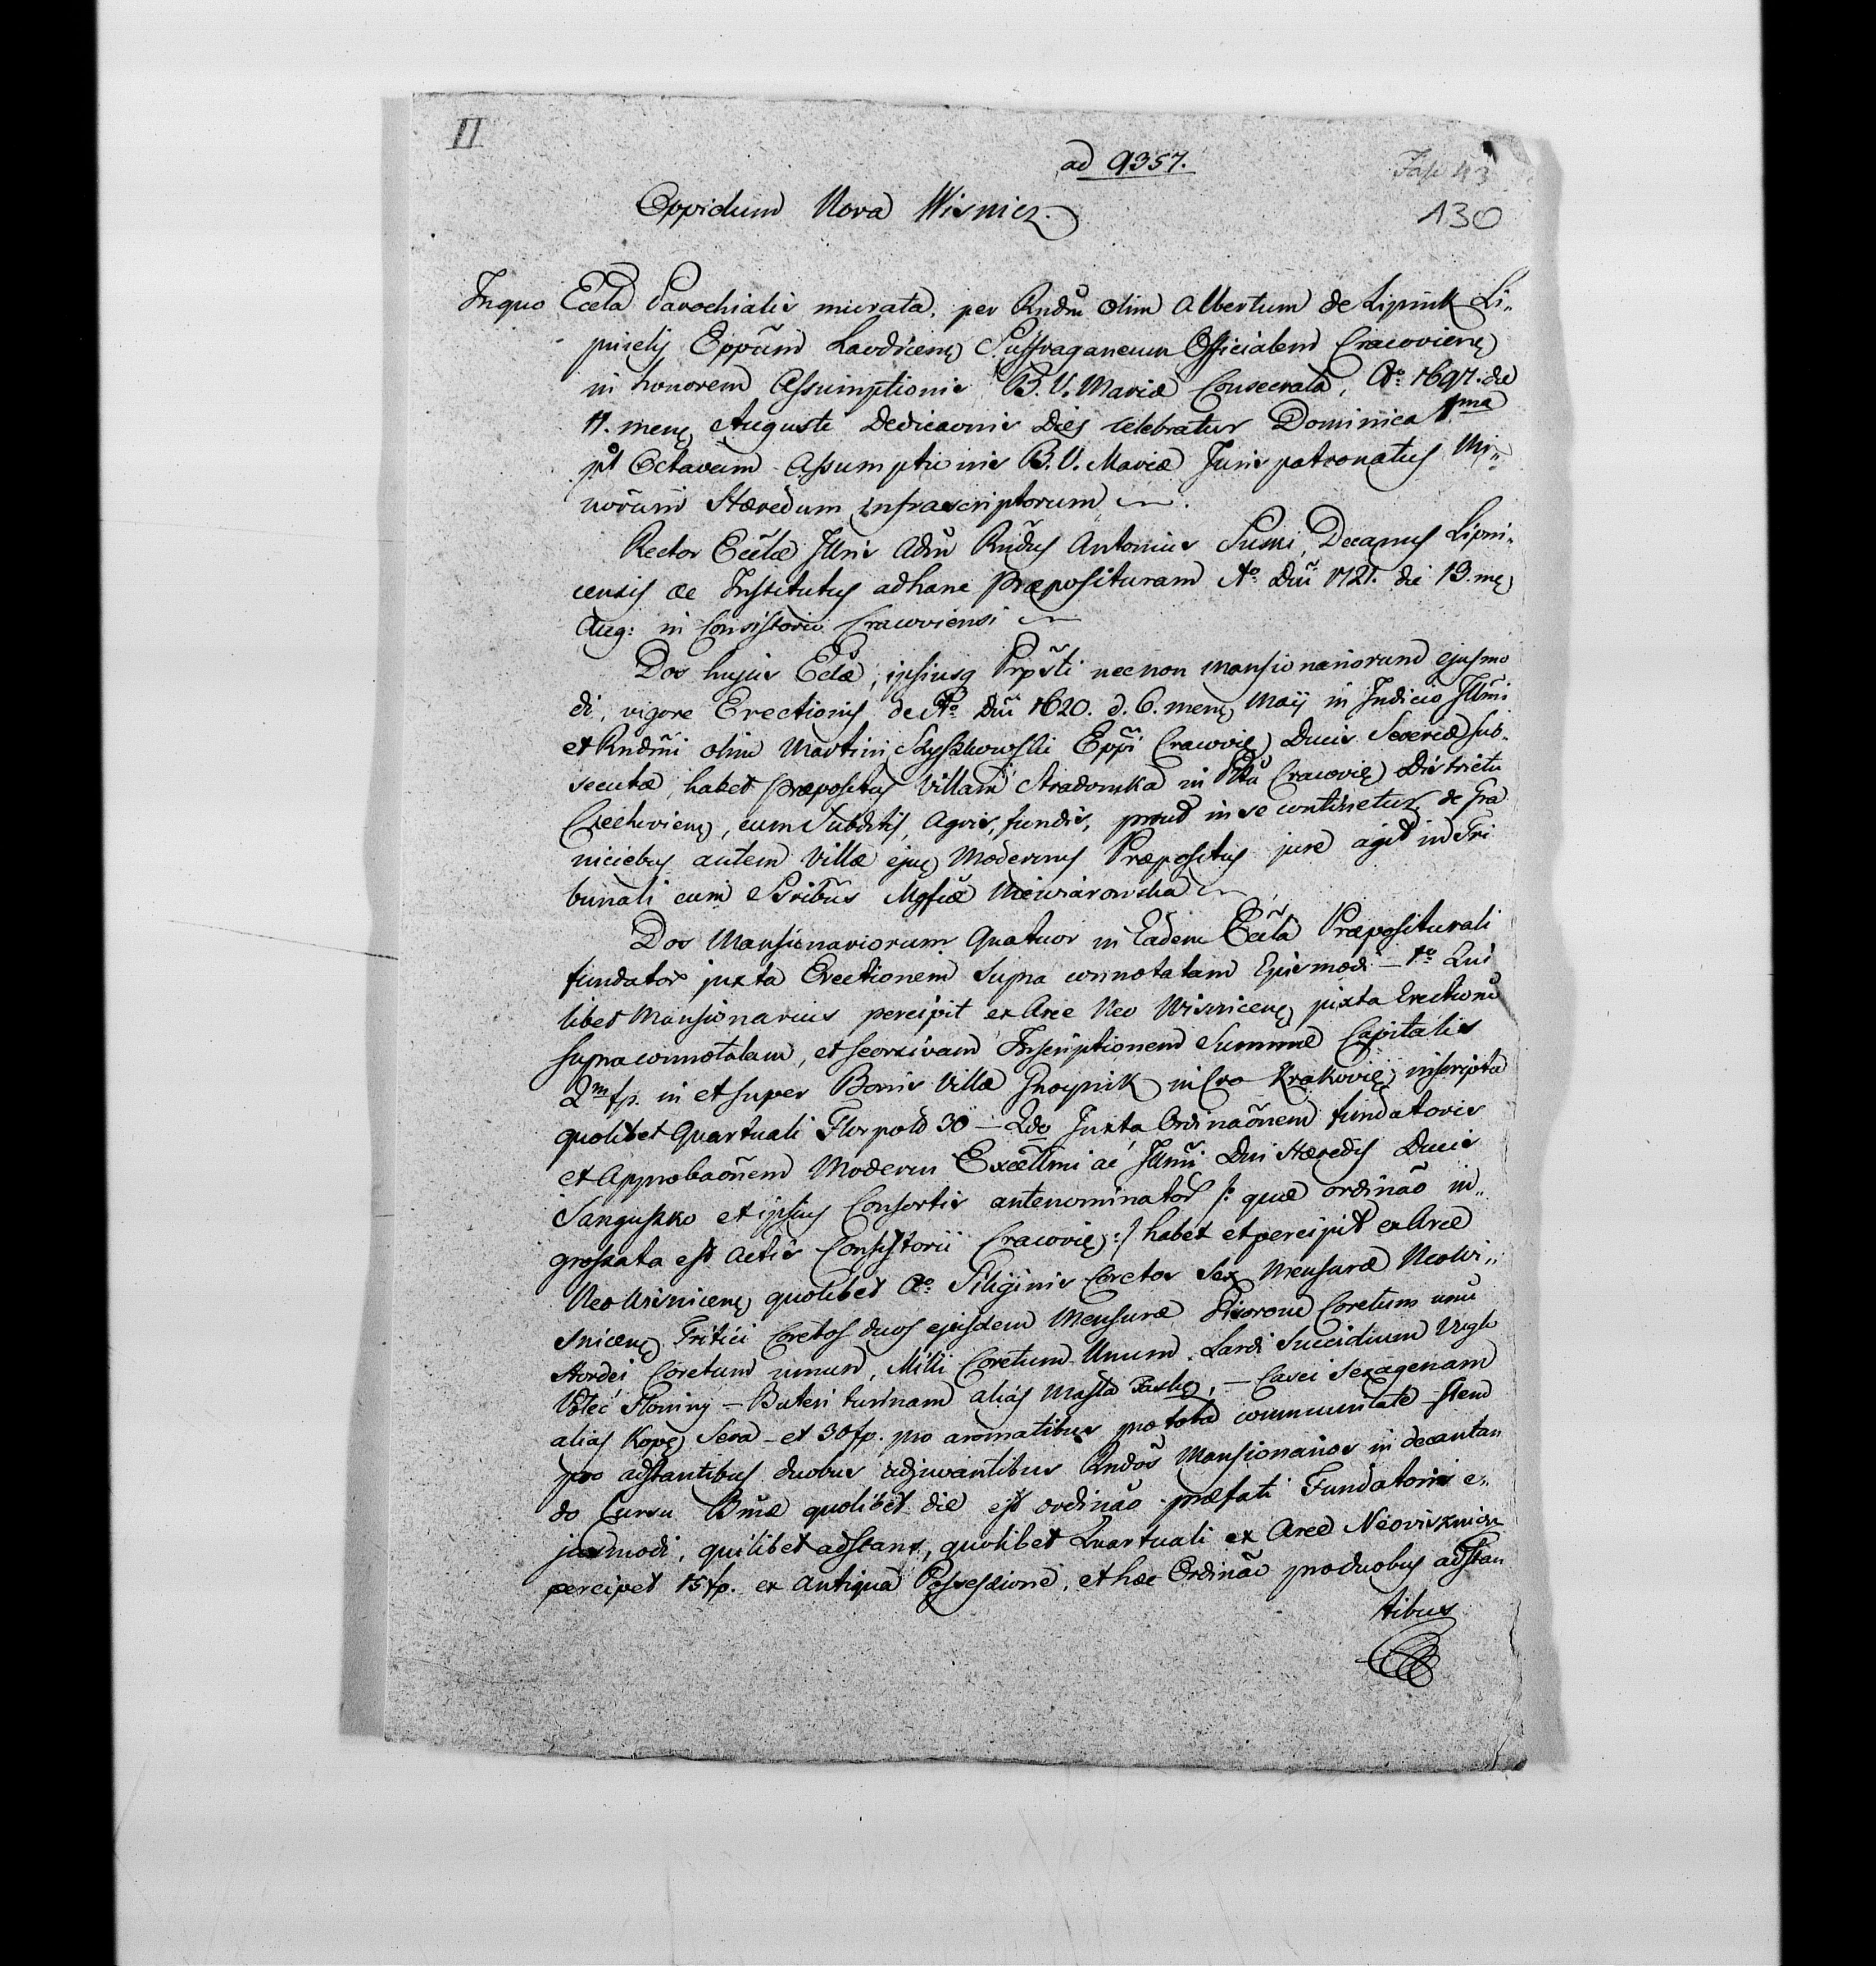 II
ad 9357.
Fasc 43
Oppidum Nova Wisnicz.
130
In quo Eccla Parochialis murata, per Rndm olim Albertum de Lipnik Li„
pnicky Eppum Laodicens Suffraganeum Officialem Cracoviens
in honorem Assumptionis B. V. Mariæ Consecrata, Ao 1697. die
11. mens Augusti Dedicaonis Dies celebratur Dominica 1ma
pt Octavam Assumptionis B. V. Mariæ Juris patronatus Mi„
norum Hæredum infrascriptorum
Rector Ecclæ Illris Adm Rndus Antonius Sumi, Decanus Lipni„
censis ac Institutus ad hanc Præposituram Ao Dni 1721. die 13. mens
Aug: in Consistorio Cracoviensi
Dos hujus Eclæ, ipsiusq Prpsti nec non mansionariorum ejusmo
di, vigore Erectionis de Ao Dni 1620. d. 6. mens Maij in Judicio Illmi
et Rndmi olim Martini Szyszkowski Eppi Cracovies Ducis Severiæ sub„
secutæ, habet Præpositus Villam Stradomka in Pltu Cracovies Districtu
Czechoviens, cum Subditis, Agris, fundis, prout in se continetur, de Gra
niciebus autem Villæ ejus Modernus Præpositus jure agit in Tri
bunali cum Hæribus Mgficæ
Dos Mansionariorum Quatuor in Eadem Eccla Præpositurali
fundator juxta Erectionem supra connotatam Ejusmodi – 1o Qui
libet Mansionarius percipit ex Arce Neo Wisnicens juxta Erectione
supra connotatam, et seorsivam Inscriptionem Summæ Capitalis
2m fp. in et super Bonis Villæ Gnoynik in Cro Krakovies inscripta
quolibet Quartuali Flor pold 30 – 2do Juxta Ordinaonem fundatoris
et Approbaonem Moderni Excellmi ac Illmi Dni Hæredis Ducis
Sanguszko et ipsius Consortis antenominator /: quæ ordinao in„
grossata est Actis Consistorii Cracovies :/ habet et percipit ex Arce
Neo Wisnicens quolibet Ao Siliginis Coretos Sex Mensuræ Neo Wi„
snicens Tritici Coretos duos ejusdem Mensuræ Pisorum Coretum unu
Hordei Coretum unum, Milii Coretum Unum. Lardi Succidium Vulgo
Połeć Słoniny – Buteri tunnam alias Masła Faskę, – Casei Sexagenam
alias Kopę Sera – et 30 fp. pro aromatibus pro tota communitate – Item
pro adstantibus duobus adjuvantibus Rndos Mansionarios in decantan
do Cursu Bmæ quolibet die est ordinao præfati Fundatoris e„
jusmodi, quilibet adstans, quolibet Quartuali ex Arce Neoviznicen
percipet 15 fp. ex Antiqua Possessione, et hæc Ordinao pro duobus adstan
tibus